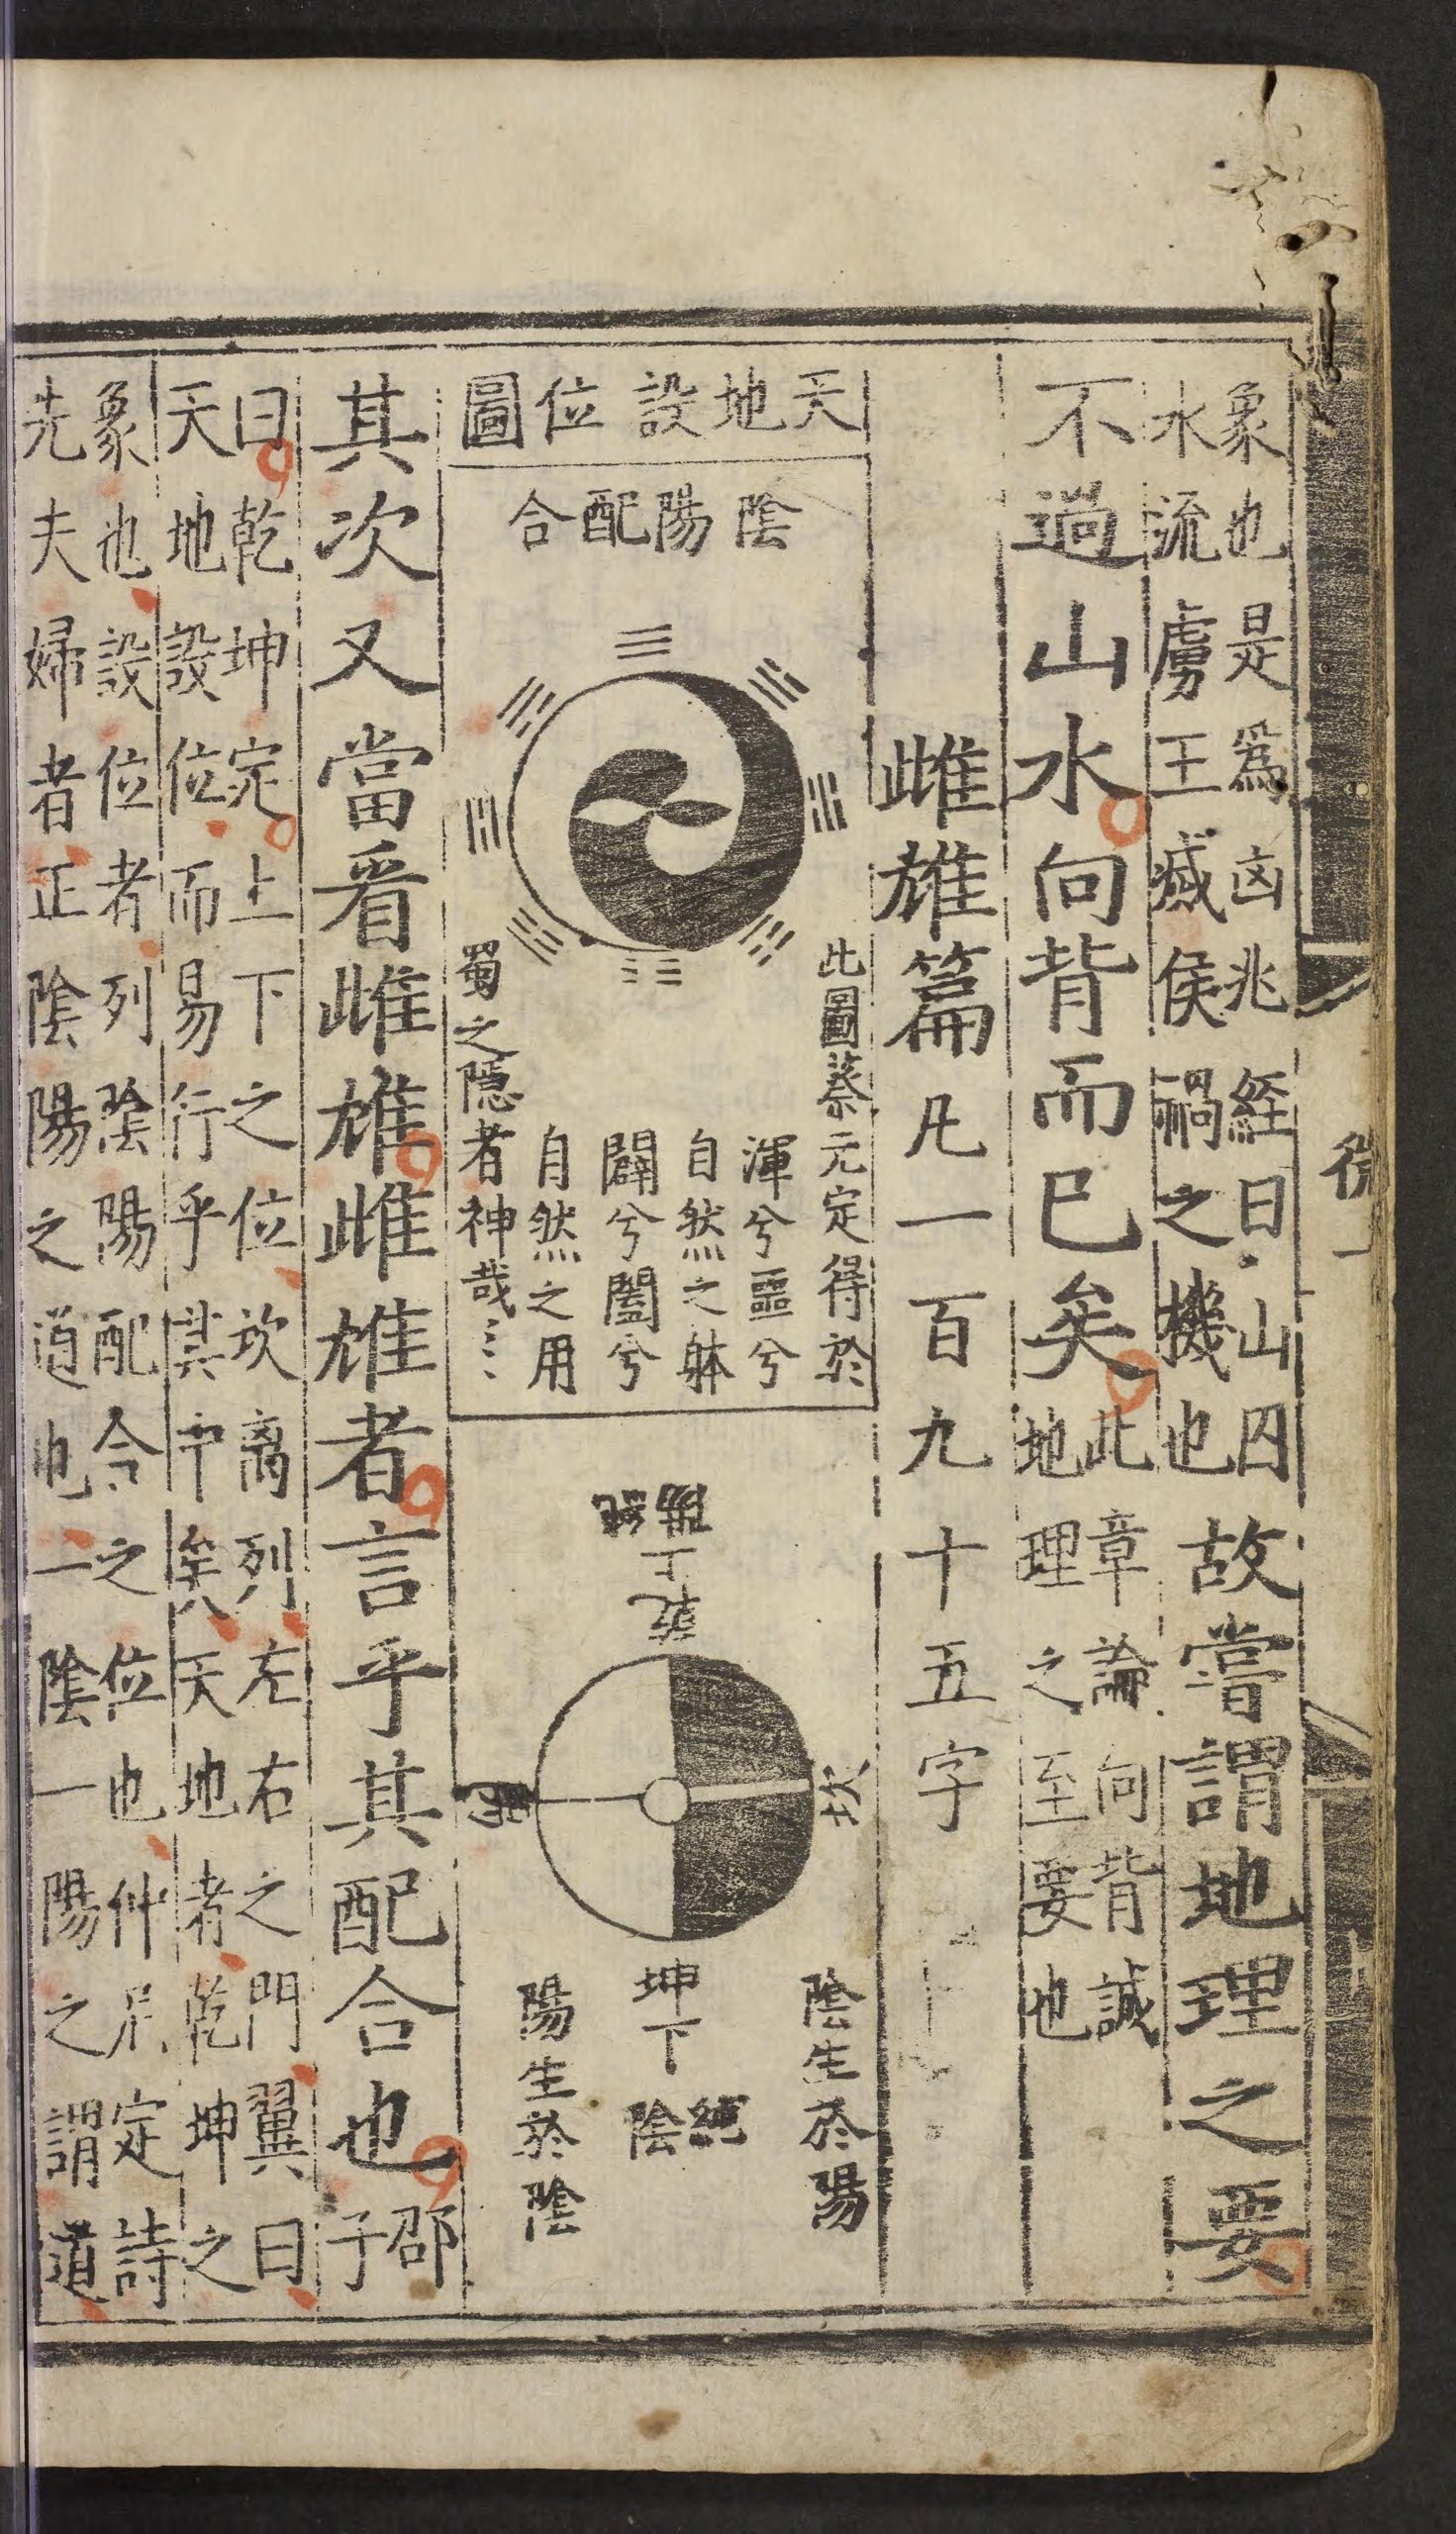 象也是爲凶兆經曰山囚
水流虜王滅侯禍之機也
故嘗謂地理之要
不過山水向背而已矣
此章論向背誠
地理之至要也
雌雄篇凡一百九十五字
天地設位圖
陰陽配合
此圖蔡元定得於
蜀之隱者神哉〻〻
渾兮噩兮
自然之躰
闢兮闔兮
自然之用
坎
坤下
純陰
陰生於陽
陽生於陰
其次又當看雌雄雌雄者言乎其配合也
邵子
曰乾坤定上下之位坎离列左右之門翼曰
天地設位而易行乎其中矣天地者乾坤之
象也設位者列陰陽配合之位也仲尼定詩
先夫婦者正陰陽之道也一陰一陽之謂道